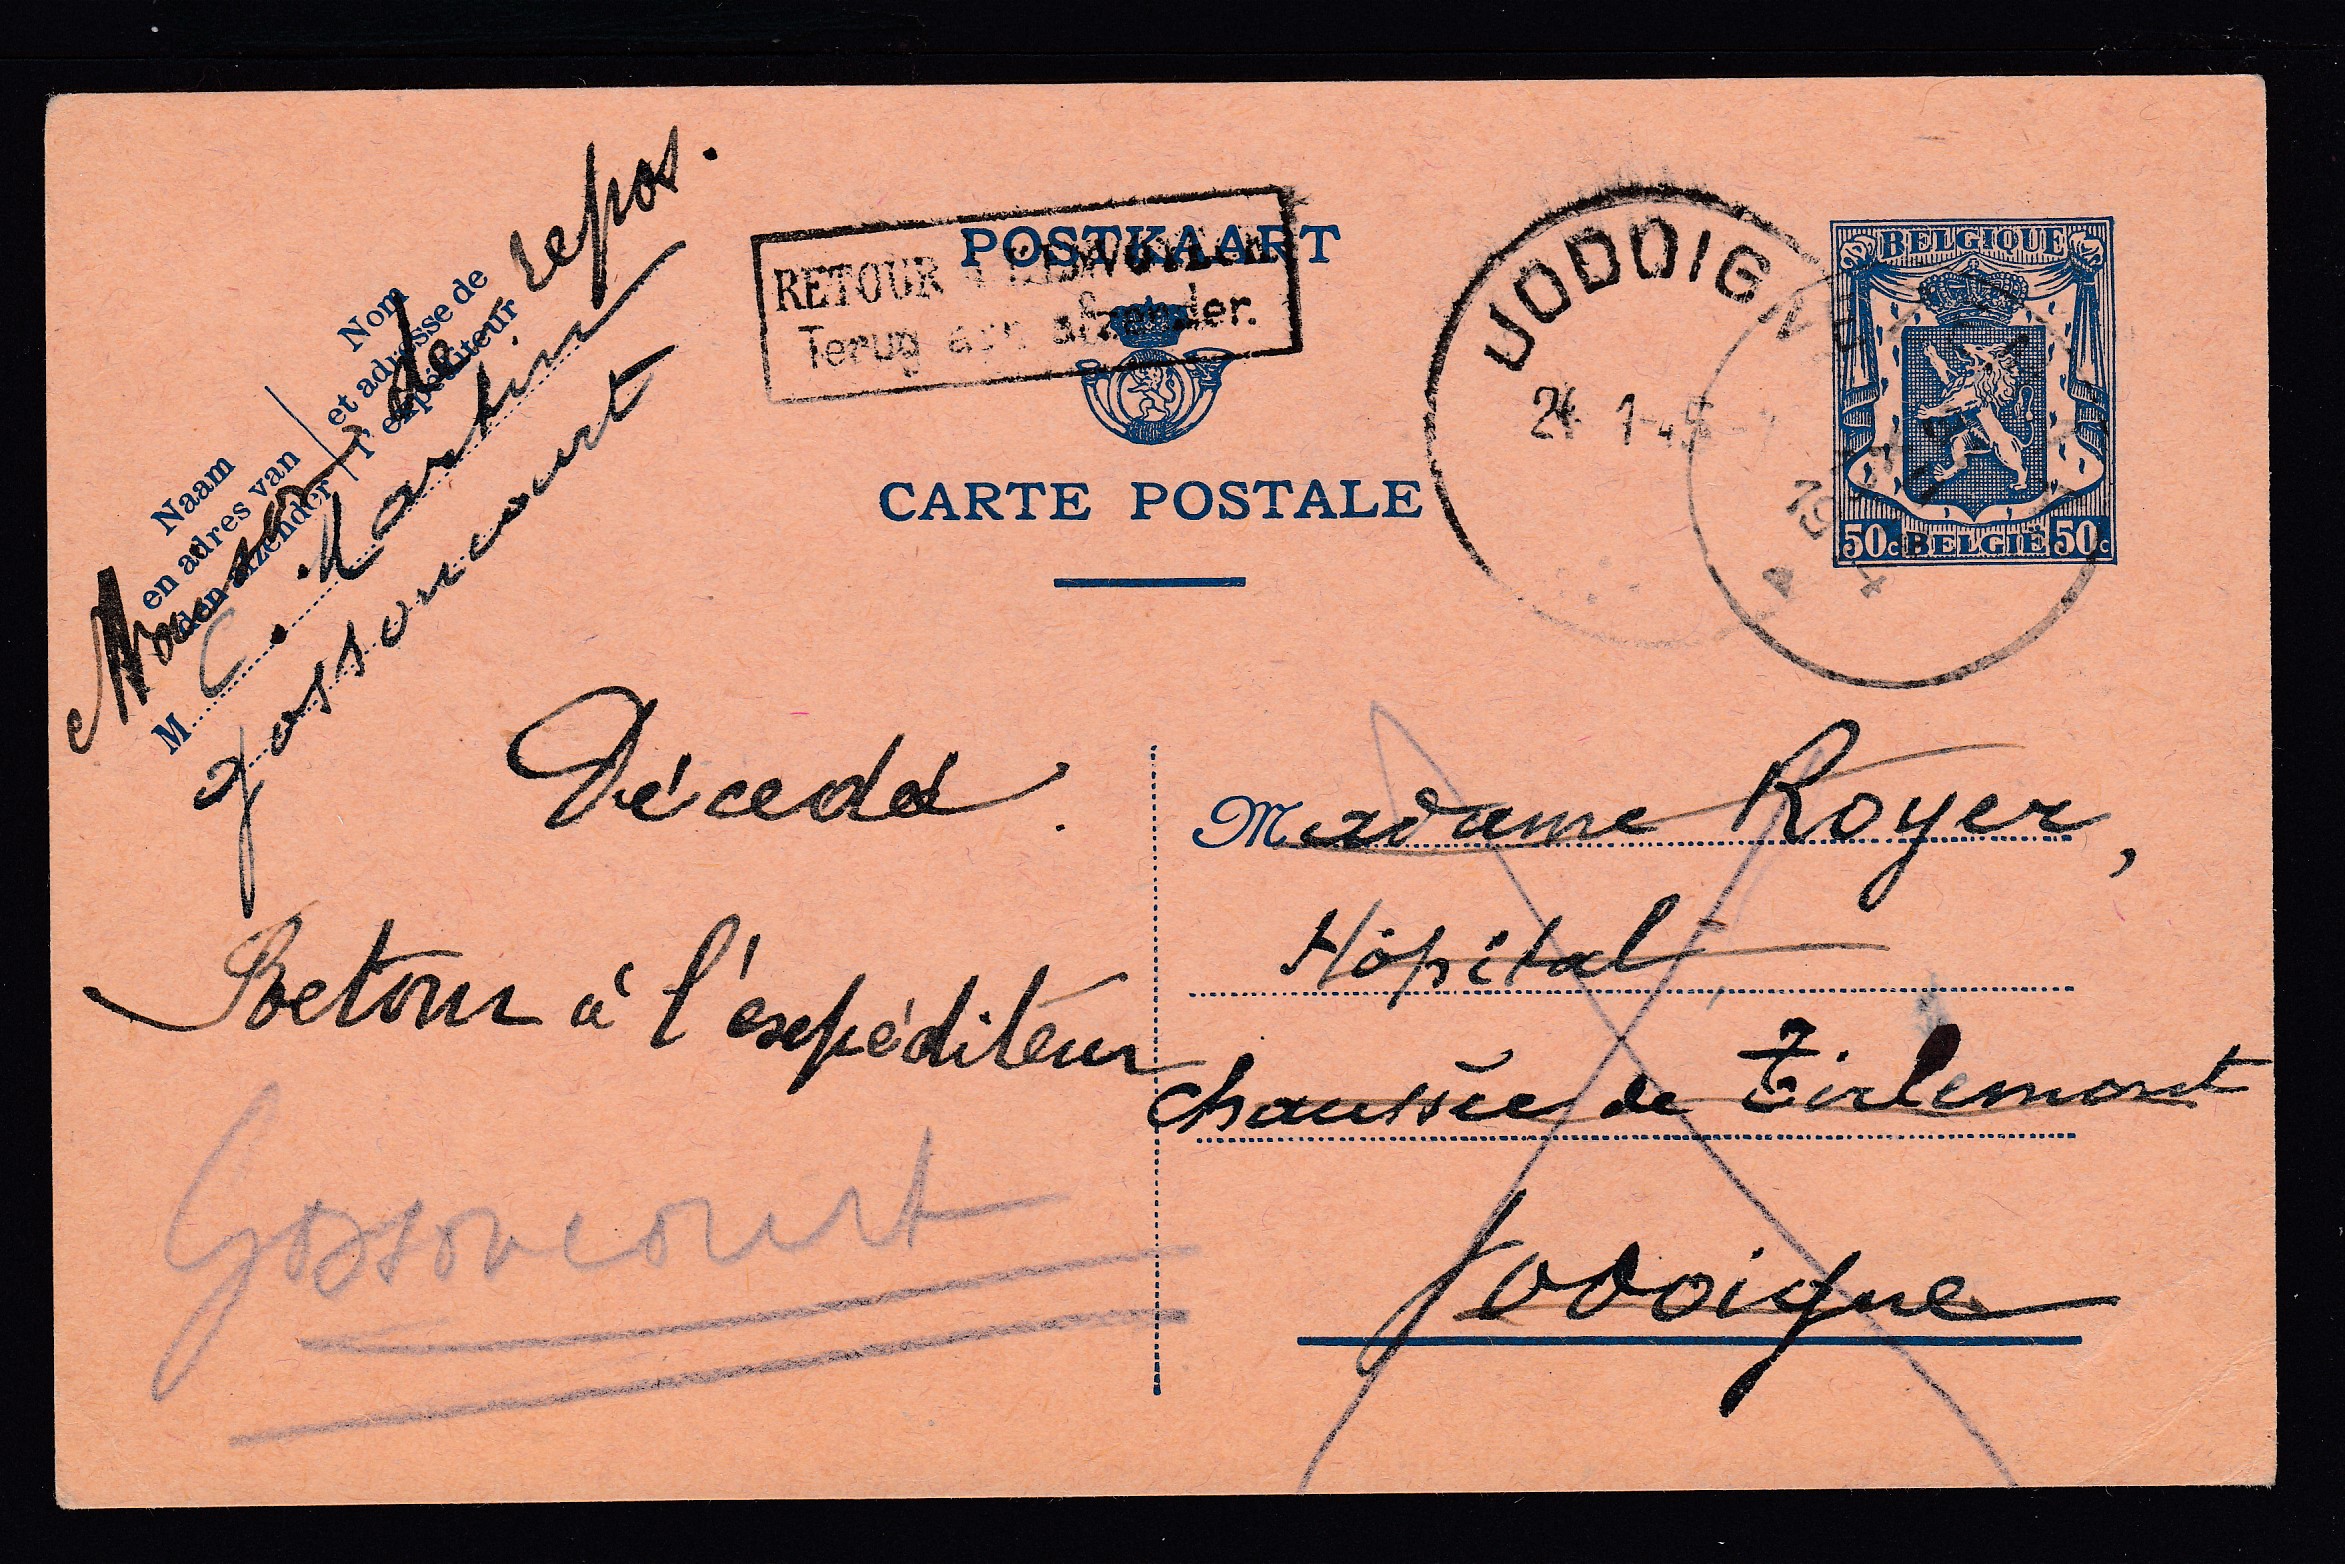 POSTKAART
CARTE POSTALE
RETOUR A L'ENVOYEUR
Terug aan afzender.
JODOIGNE
24 1-45
BELGIQUE
50c BELGIË 50c
Nom
et adresse de
l'expéditeur
Naam
en adres van
den afzender
Maison de repos.
M C. Martin
Gossoncourt
Décedé
Retour à l'expéditeur
Gossoncourt
Madame Royer,
Hôpital
chaussée de Tirlemont
Jodoigne